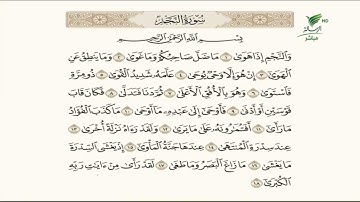 سُورَةُ النَّجْمِ
بِسْمِ اللَّهِ الرَّحْمَٰنِ الرَّحِيمِ
وَالنَّجْمِ إِذَا هَوَىٰ ١ مَا ضَلَّ صَاحِبُكُمْ وَمَا غَوَىٰ ٢ وَمَا يَنطِقُ عَنِ
الْهَوَىٰ ٣ إِنْ هُوَ إِلَّا وَحْيٌ يُوحَىٰ ٤ عَلَّمَهُ شَدِيدُ الْقُوَىٰ ٥ ذُو مِرَّةٍ
فَاسْتَوَىٰ ٦ وَهُوَ بِالْأُفُقِ الْأَعْلَىٰ ٧ ثُمَّ دَنَا فَتَدَلَّىٰ ٨ فَكَانَ قَابَ
قَوْسَيْنِ أَوْ أَدْنَىٰ ٩ فَأَوْحَىٰ إِلَىٰ عَبْدِهِ مَا أَوْحَىٰ ١٠ مَا كَذَبَ الْفُؤَادُ
مَا رَأَىٰ ١١ أَفَتُمَارُونَهُ عَلَىٰ مَا يَرَىٰ ١٢ وَلَقَدْ رَآهُ نَزْلَةً أُخْرَىٰ ١٣
عِندَ سِدْرَةِ الْمُنتَهَىٰ ١٤ عِندَهَا جَنَّةُ الْمَأْوَىٰ ١٥ إِذْ يَغْشَى السِّدْرَةَ
مَا يَغْشَىٰ ١٦ مَا زَاغَ الْبَصَرُ وَمَا طَغَىٰ ١٧ لَقَدْ رَأَىٰ مِنْ آيَاتِ رَبِّهِ
الْكُبْرَىٰ ١٨
HD
مباشر